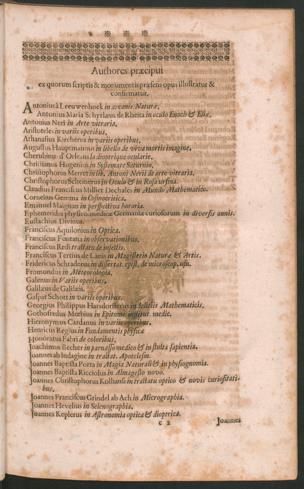 Authores præcipui
ex quorum scriptis & monumentis præsens opus illustratur &
confirmatur.
Antonius Leeuwenhoek in arcanis Naturæ,
Antonius Maria Schyrlæus de Rheita in oculo Enoch & Eliæ,
Antonius Neri in Arte vitraria.
Aristoteles in variis operibus,
Athanasius Kircherus in variis operibus,
Augustus Hauptmannus in libello de viva mortis imagine,
Cherubinus d' Orleans la dioptrique oculaire.
Christianus Hugenius in Systemate Saturnio,
Christophorus Merret in lib. Antonii Nerii de arte vitraria.
Christophorus Scheinerus in Oculo & in Rosa ursina.
Claudius Franciscus Milliet Dechales in Mundo Mathematico.
Cornelius Gemma in Cosmocritica,
Emanuel Magnan in perspectiva horaria.
Ephemerides physico medicæ Germaniæ curiosorum in diversis annis.
Eustachius Divinus.
Franciscus Aquilonius in Optica.
Franciscus Fontana in observationibus.
Franciscus Redi tractatu de insectis.
Franciscus Tertius de Lanis in Magisterio Naturæ & Artis.
Fridericus Schraderus in dissertat. epist. de microscop. usu.
Fromundus in Meteorologia.
Galenus in Variis operibus.
Galilæus de Galilæis.
Gaspar Schott in variis operibus.
Georgius Philippus Harsdorfferus in delitiis Mathematicis.
Gothofredus Mœbius in Epitome institut. medic.
Hieronymus Cardanus in variis operibus.
Henricus Regius in Fundamentis physicæ
Honoratus Fabri de coloribus.
Joachimus Becher in parnasso medico & in stulta sapientia.
Joannes ab Indagine in tractat. Apotelesm.
Joannes Baptista Porta in Magia Naturali & in physiognomia.
Joannes Baptista Ricciolus in Almagesto novo.
Joannes Christophorus Kolhansi in tractatu optico & novis curiositati-
bus.
Joannes Franciscus Grindel ab Ach in Micrographia.
Joannes Hevelius in Selenographia.
Joannes Keplerus in Astronomia optica & dioptrica.
c 2 Joannes